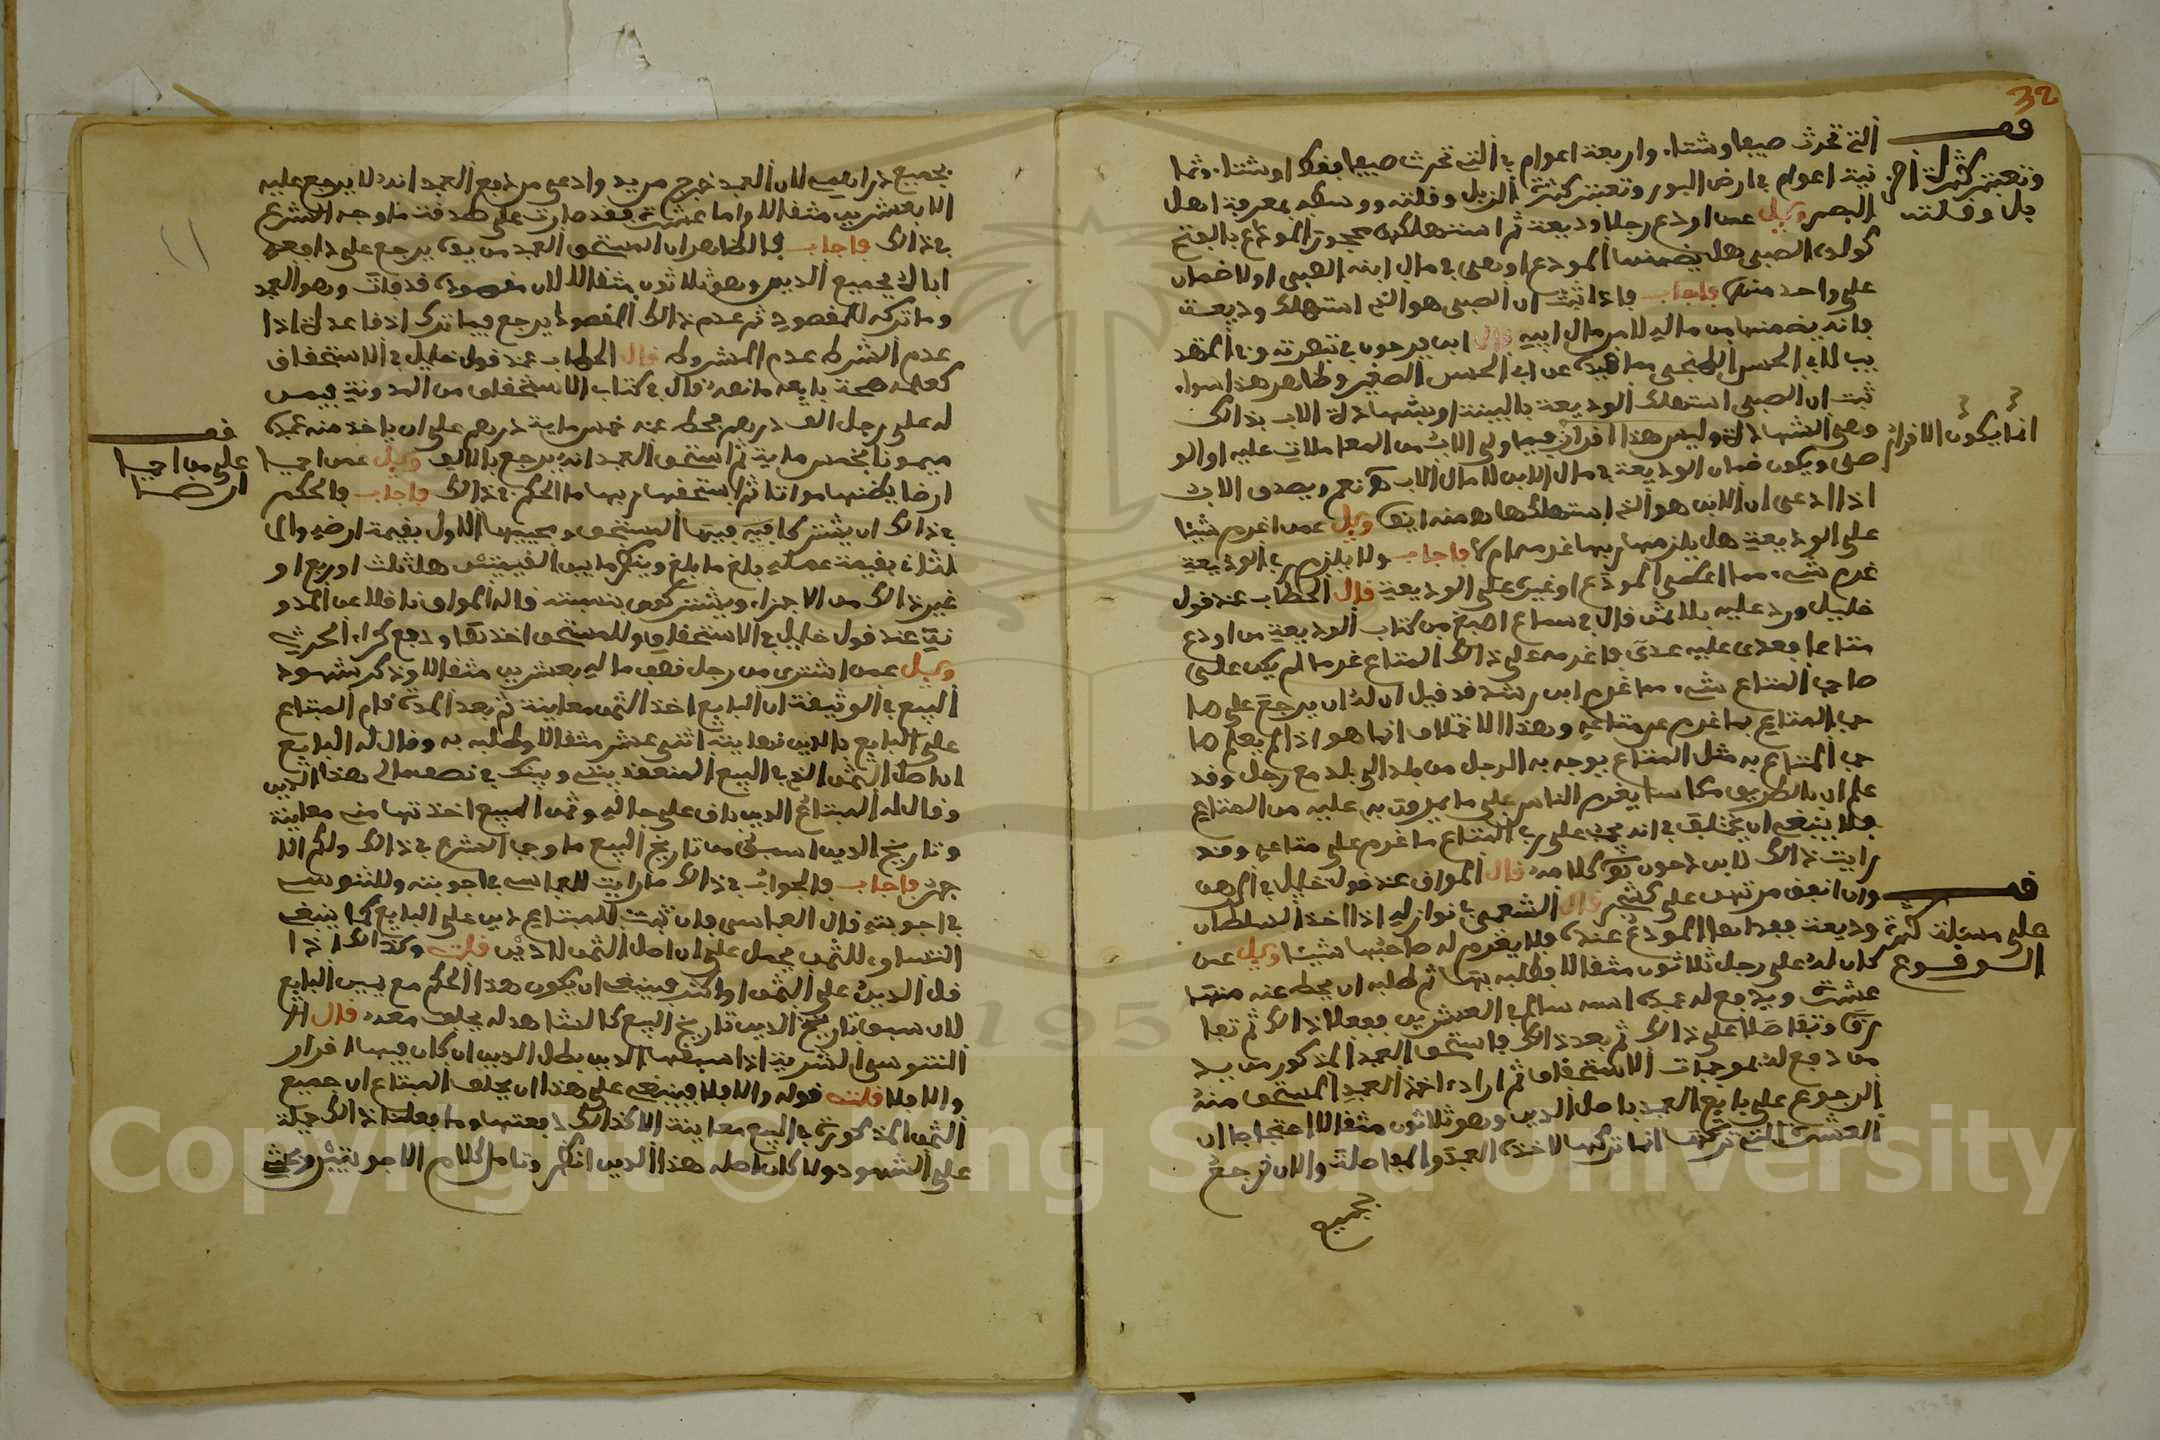 32
التي تحرث صيفا وشتاء واربعة اعوام في التي تحرث صيفا فقط او شتاء وثما
نية اعوام في ارض البور وتعتبر كثرة الزبل وقلته ووسطه بمعرفة اهل
البصر وسيل عمن اودع رجلا وديعة ثم استهلكها محجور المودع بالفتح
كولده الصبي هل يضمنها المودع او هي في مال ابنه الصبي او لا ضمان
على واحد منهما فاجاب فاذا ثبت ان الصبي هو الذي استهلك وديعة
فانه يضمنها من ماله لا من مال ابيه قال ابن فرحون في تبصرته وفي المقصد
ثبت ان الصبي استهلك الوديعة بالبينة او بشهادة الاب بذالك
وهي الشهادة وليس هذا اقرار فيما ولي الاب من المعاملات عليه او الو
صي ويكون ضمان الوديعة في مال الابن لا مال الاب نعم ويصدق الاب
اذا ادعى ان الابن هو الذي استهلكها وسيل عمن اغرم شيئا
على الوديعة هل يلزم ربها غرمه ام لا فاجاب ولا يلزم رب الوديعة
غرم شيء مما اعطى المودع او غيره على الوديعة قال الحطاب عند قول
خليل ورد عليه بلا ثمن قال في سماع اصبغ من كتاب الوديعة من اودع
متاعا فعدى عليه عدي فاغرمه على ذالك المتاع غرما لم يكن على
صاحب المتاع شيء مما غرم ابن رشد قد قيل ان له ان يرجع على صا
حب المتاع بما غرم عن متاعه وهذا الاختلاف انما هو اذا لم يعلم صا
حب المتاع به مثل المتاع يوجه به الرجل من بلد الى بلد مع رجل وقد
علم ان بالطريق مكاسا يغرم الناس على ما يمرون به عليه من المتاع
فلا ينبغي ان يختلف في انه يجب على رب المتاع ما غرم على متاعه وقد
رايت ذالك لابن دحون كلامه قال المواق عند قول خليل في الرهن
وان انفق مرتهن على كشجر قال الشعبي في نوازله اذا اخذ السلطان
وديعة ففداها المودع عنده فلا يغرم له صاحبها شيئا وسيل عمن
كان له على رجل ثلاثون مثقالا فطلبه بها ثم طلبه ان يحط عنه منها
عشرة ويدفع له عبده اسمه سالم في العشرين ففعلا ذالك ثم تفا
رقا وتفاصلا على ذالك ثم بعد ذالك فاستحق العبد المذكور من يد
من دفع له بموجبات الاستحقاق ثم اراد اخذ العبد المستحق منه
الرجوع على بايع العبد باصل الدين وهو ثلاثون مثقالا احتجاجا ان
العشرة التي تركتها انما تركتها لاخذ العبد والمفاصلة والان فرجع
بجميع
قف
وتعتبر كثرة الز
بل وقلته
انما يكون الاقرار
قف
على مسئلة كثيرة
الوقوع
بجميع دراهمي لان العبد خرج من يدي وادعى من دفع العبد انه لا يرجع عليه
الا بعشرين مثقالا واما عشرة فقد صارت على صدقة ما وجه الشرع
في ذالك فاجاب فالظاهر ان المستحق العبد من يده يرجع على دافعه
اياه بجميع الدين وهو ثلاثون مثقالا لان مقصوده قد فات وهو العبد
وما تركه للمقصود ثم عدم ذالك المقصود يرجع فيما ترك اذ قاعدة اذا
عدم الشرط عدم المشروط قال الحطاب عند قول خليل في الاستحقاق
كعلمه صحة بايعه ما نصه قال في كتاب الاستحقاق من المدونة فيمن
له على رجل الف درهم فحط عنه خمس ماية درهم على ان ياخذ منه عبده
ميمونا بخمس ماية ثم استحق العبد انه يرجع بالالف وسيل عمن احيا
ارضا يظنها مواتا ثم استحقها ربها ما الحكم في ذالك فاجاب فالحكم
في ذالك ان يشتركا فيها المستحق ومحييها الاول بقيمة ارضه وال
ثاني بقيمة عمله بلغ ما بلغ وينظر ما بين القيمتين هل ثلث او ربع او
غير ذالك من الاجزاء ويشتركون بنسبته قاله المواق ناقلا عن المدو
نة عند قول خليل في الاستحقاق وللمستحق اخذها ودفع كراء الحرث
وسيل عمن اشترى من رجل نصف ماله بعشرين مثقالا وذكر شهود
البيع في الوثيقة ان البايع اخذ الثمن معاينة ثم بعد المدة قام المبتاع
على البايع بالدين نهايته اثنى عشر مثقالا وطلبه به وقال له البايع
ان اصل الثمن الذي في البيع المنعقد بيني وبينك في نصف مالي هذا الدين
وقال له المبتاع الدين باق على حاله وثمن المبيع اخذتها مني معاينة
وتاريخ الدين اسبق من تاريخ البيع ما وجب الشرع في ذالك ولكم الا
جر فاجاب فالجواب في ذالك ما رايت للعباسي في اجوبته وللتنوسي
في اجوبته قال العباسي فان ثبت للمبتاع دين على البايع كما ينبغي
التساوي للثمن يحمل على ان اصل الثمن الدين قلت وكذالك اذا
قل الدين على الثمن او اكثر وينبغي ان يكون هذا الحكم مع يمين البايع
لان سبق تاريخ الدين تاريخ البيع كالشاهد له يحلف معه قال
التنوسي الشرية اذا سبقها الدين يبطل الدين ان كان فيها اقرار
والا فلا قلت قوله والا فلا فينبغي على هذا ان يحلف المبتاع ان جميع
الثمن المذكورة في البيع معاينة الا كذالك دفعتها وما فعلت ذالك حيلة
على الشهود ولا كان اصله هذا الدين انظر وتامل كلام الاجوبتين وبحث
قف
على من احيا
ارضا